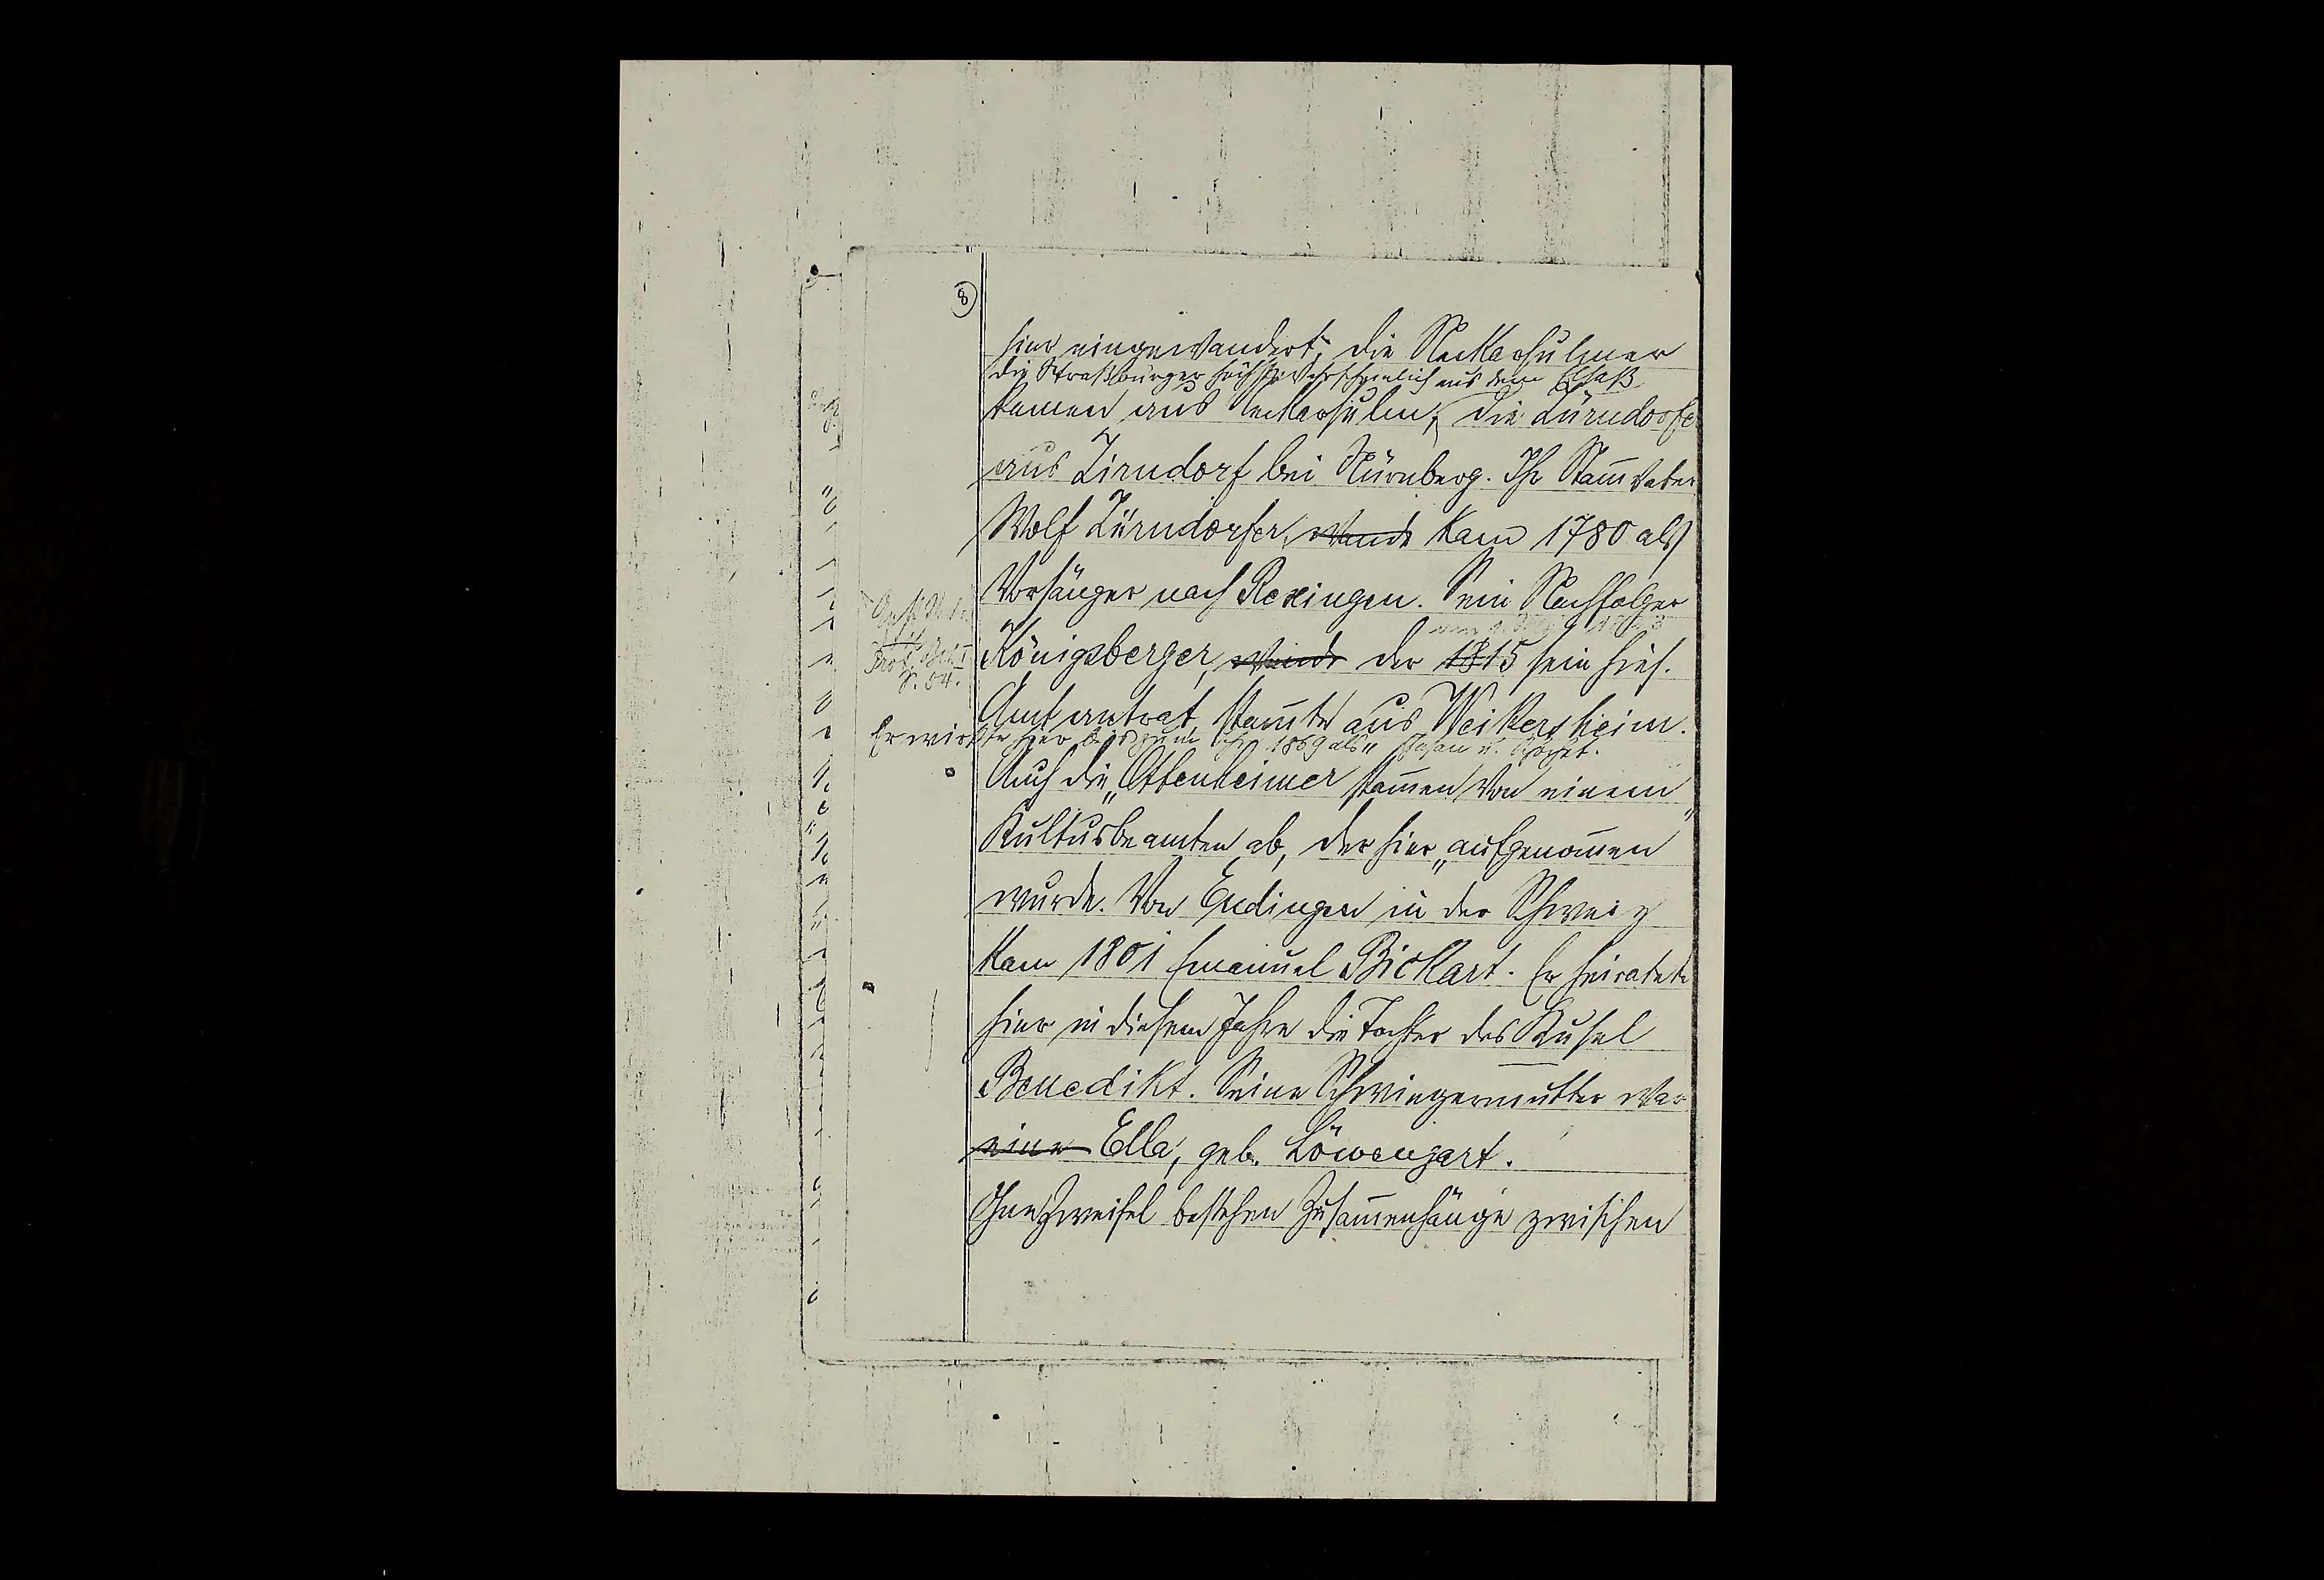 8
hier eingewandert; die Neckarsulmer
die Straßburger höchst wahrscheinlich aus dem Elsaß
kamen aus Neckarsulm; die Zürndorfer
aus Zirndorf bei Nürnberg. Ihr Stam̅vater
Wolf Zürndorfer, wurde kam 1780 als
Vorsänger nach Rexingen. Sein Nachfolger
Prot. Bd. I
S. 54.
Königsberger, wurde der 1815 sein hies.
Amt antrat, stam̅te aus Weikersheim.
Er wirkte hier bis zum 1869 als „Chasan u. Schochet.
Auch die „Ottenheimer" stam̅en von einem
Kultusbeamten ab, der hier „aufgenom̅en"
wurde. Von Endingen in der Schweiz
kam 1801 Emanuel Bickart. Er heiratete
hier in diesem Jahre die Tochter des Kusel
Benedikt. Seine Schwiegermutter war
eine Ella, geb. Löwengart.
Ohne Zweifel bestehen Zusam̅enhänge zwischen